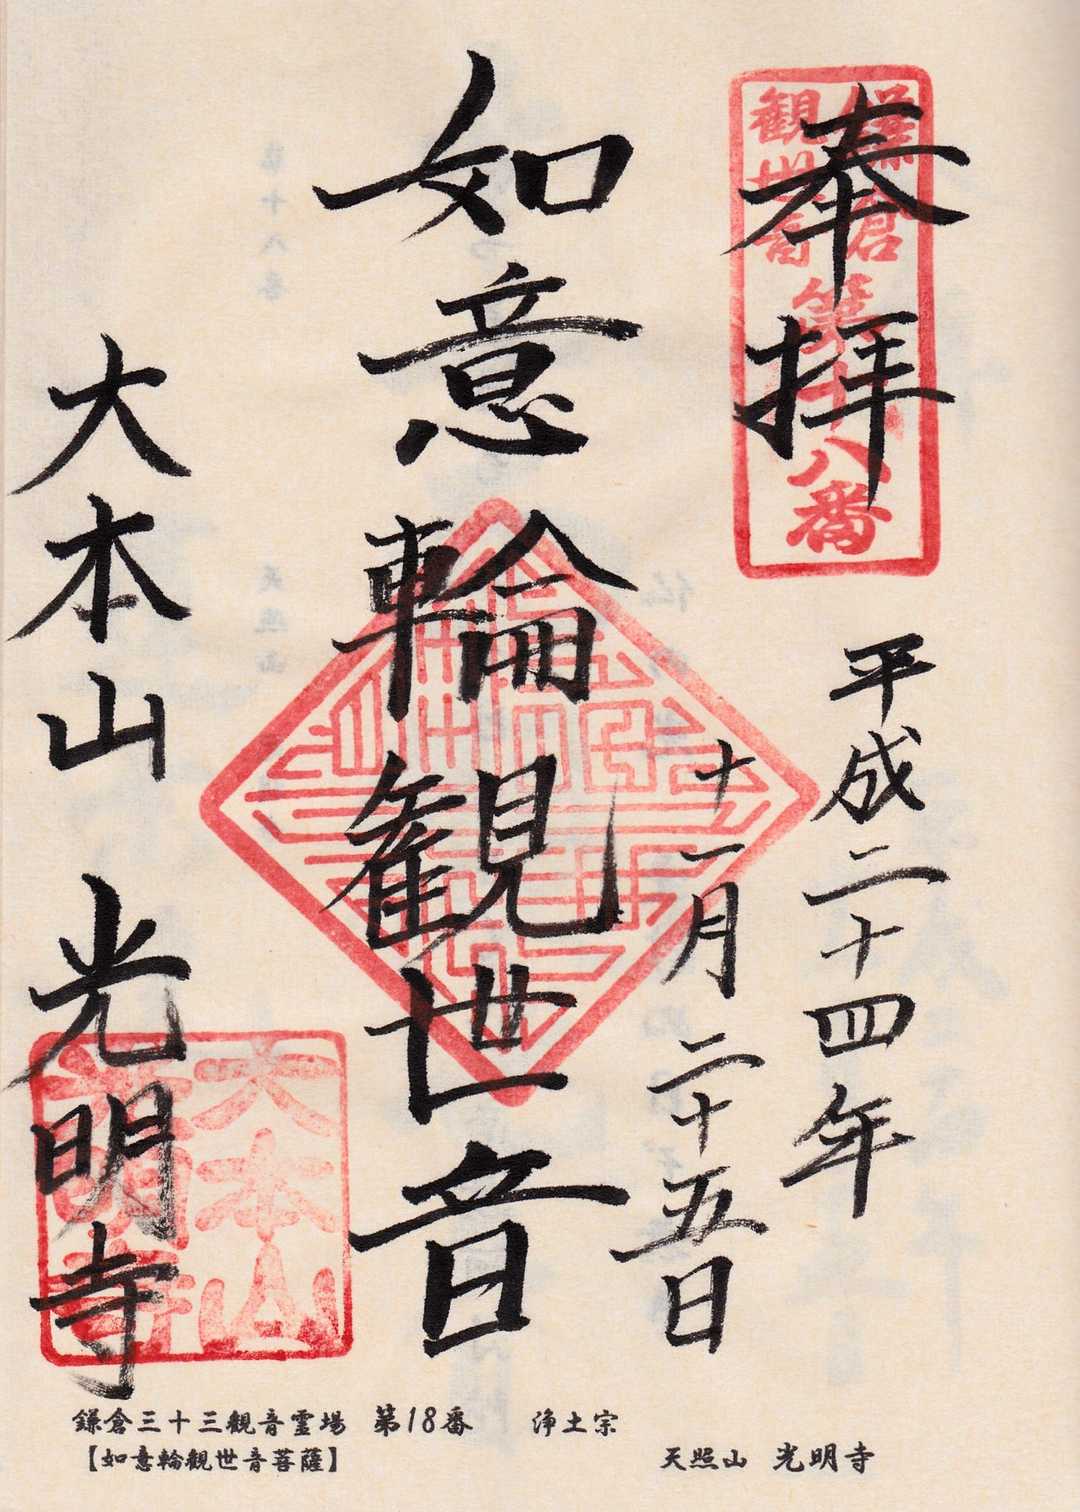 奉拝
鎌倉
観世音
第十八番
平成二十四年
十一月二十五日
如意輪観世音
大本山 光明寺
大本山
光明寺
鎌倉三十三観音霊場 第18番 浄土宗
【如意輪観世音菩薩】
天照山 光明寺